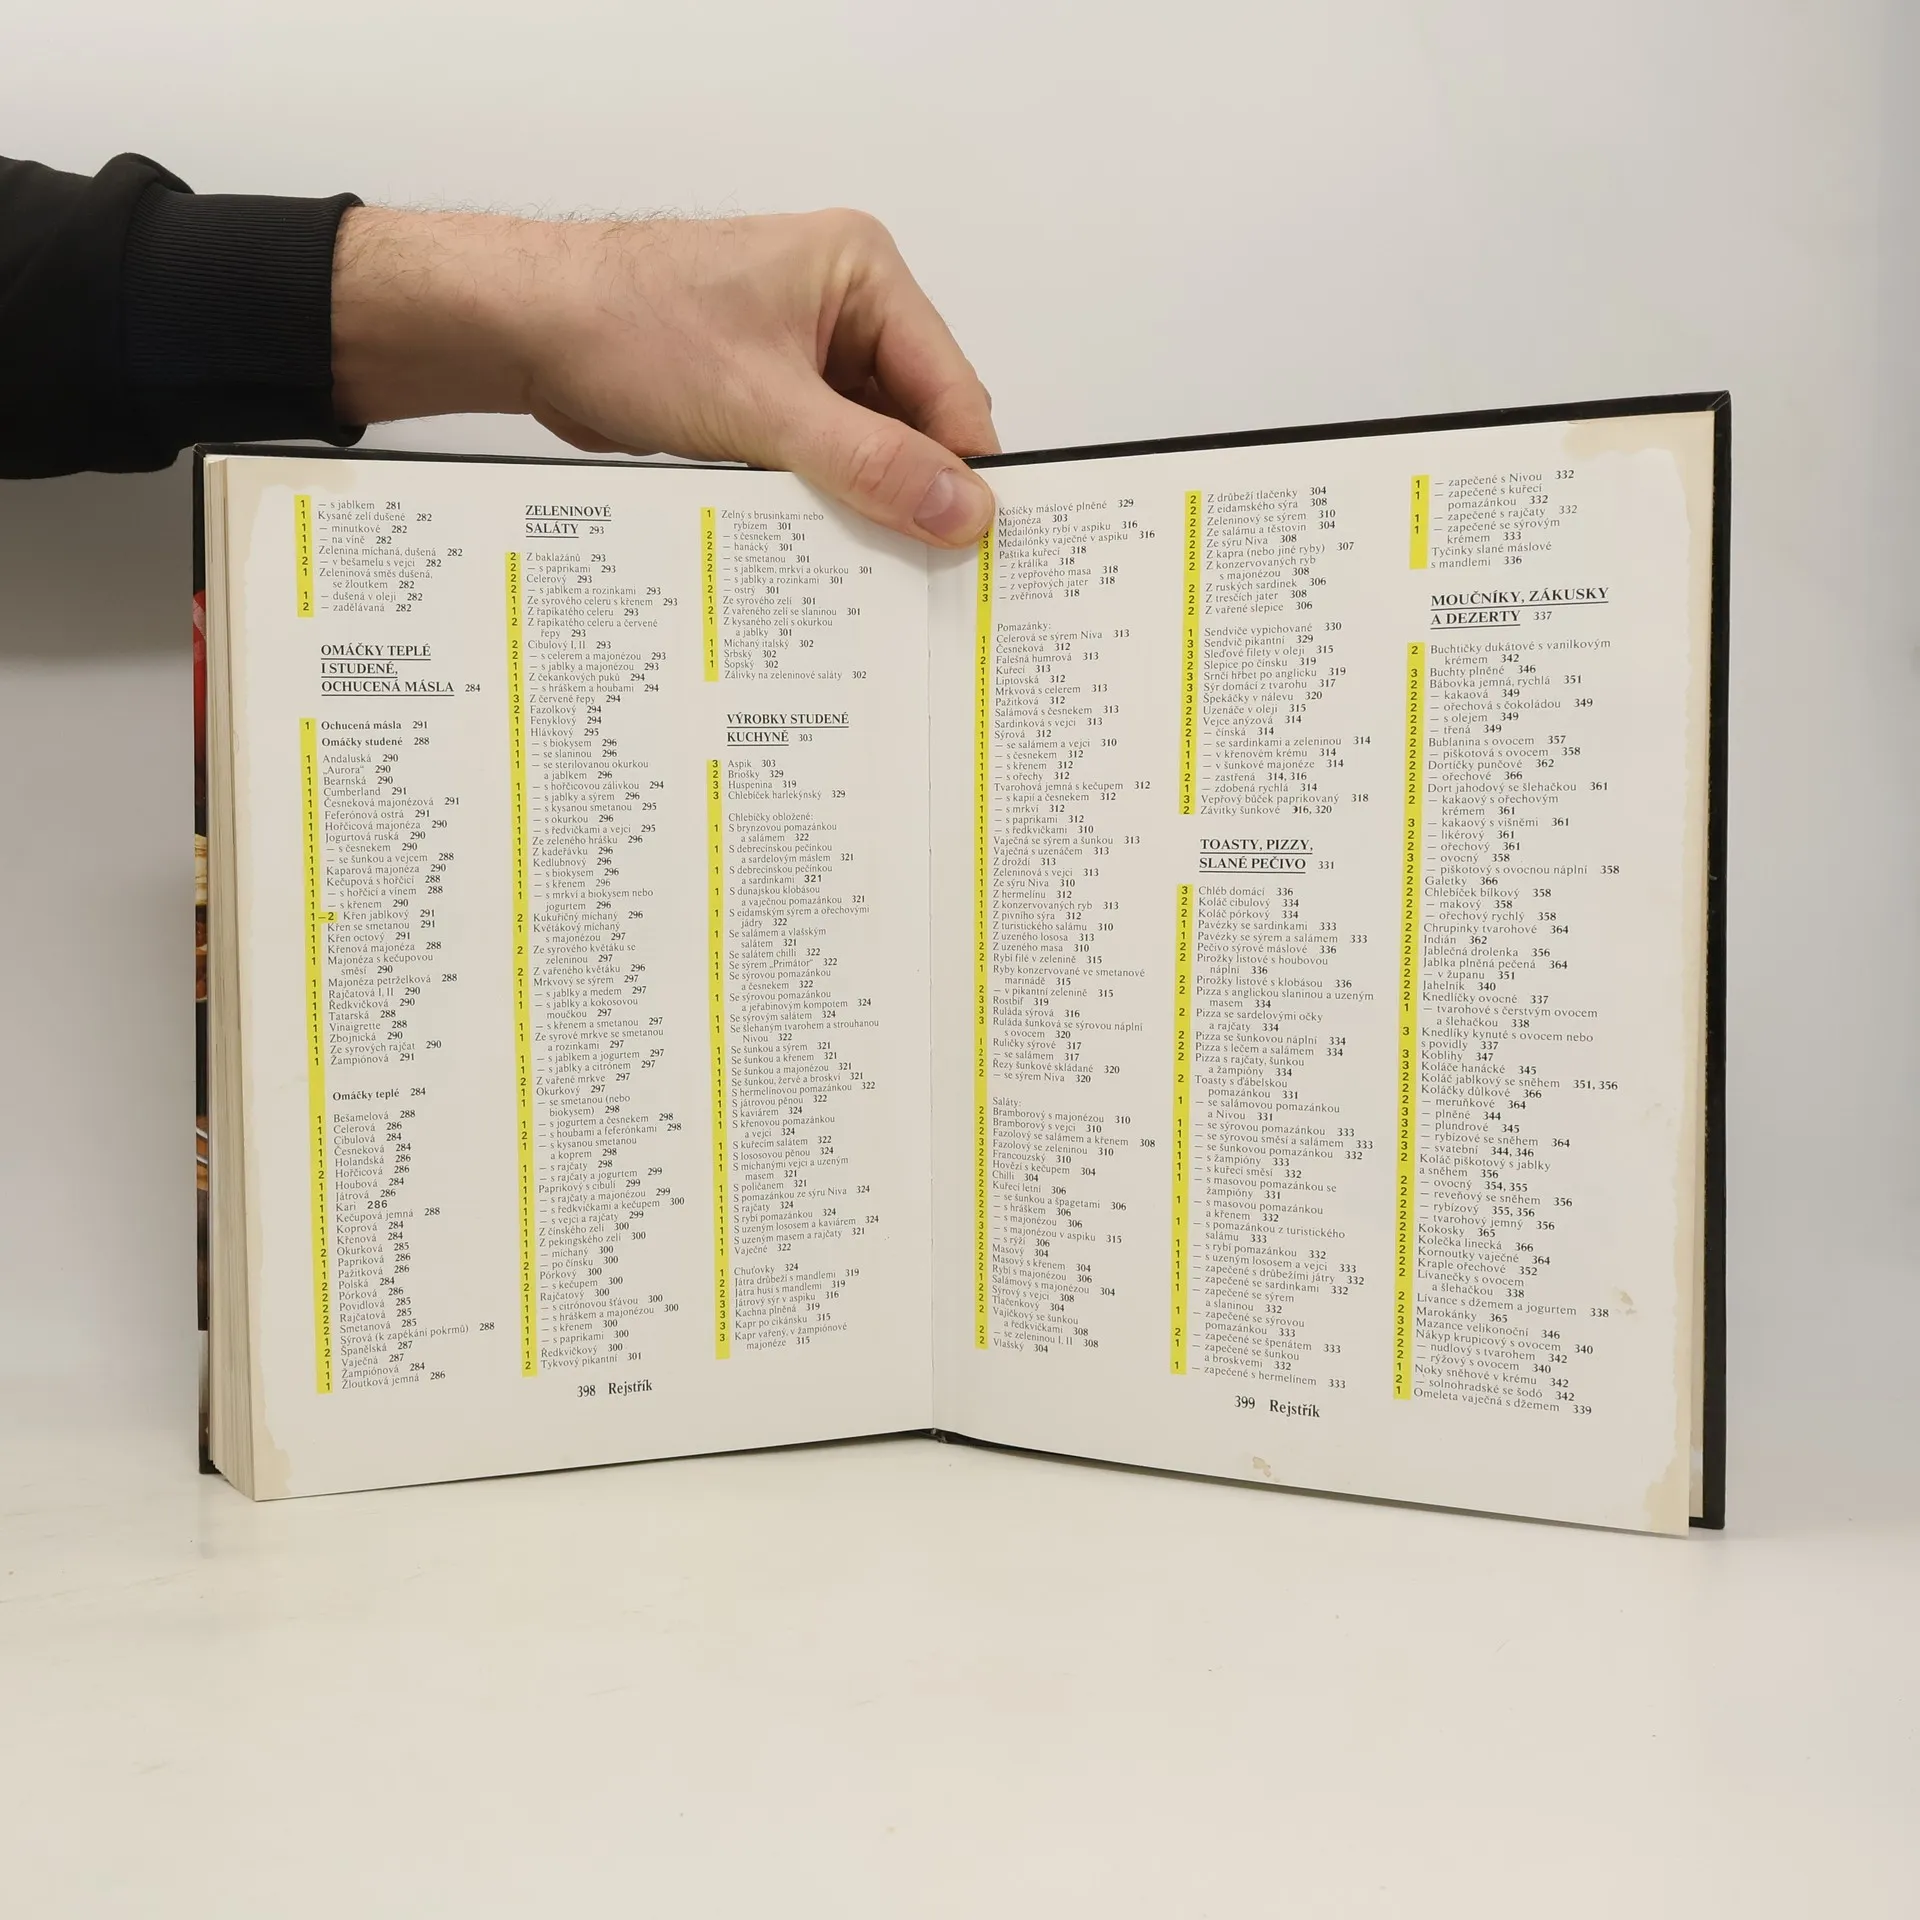 1 — s jablkem 281
1 Kysané zelí dušené 282
1 — minutkové 282
1 — na víně 282
1 Zelenina míchaná, dušená 282
2 — v bešamelu s vejci 282
1 Zeleninová směs dušená,
se žloutkem 282
1 — dušená v oleji 282
2 — zadělávaná 282
OMÁČKY TEPLÉ
I STUDENÉ,
OCHUCENÁ MÁSLA 284
1 Ochucená másla 291
Omáčky studené 288
1 Andaluská 290
1 „Aurora“ 290
1 Bearnská 290
1 Cumberland 291
1 Česneková majonézová 291
1 Feferónová ostrá 291
1 Hořčicová majonéza 290
1 Jogurtová ruská 290
1 — s česnekem 290
1 — se šunkou a vejcem 288
1 Kaparová majonéza 290
1 Kečupová s hořčicí 288
1 — s hořčicí a vínem 288
1 — s křenem 290
1—2 Křen jablkový 291
1 Křen se smetanou 291
1 Křen octový 291
1 Křenová majonéza 288
1 Majonéza s kečupovou
směsí 290
1 Majonéza petrželková 288
1 Rajčatová I, II 290
1 Ředkvičková 290
1 Tatarská 288
1 Vinaigrette 288
1 Zbojnická 290
1 Ze syrových rajčat 290
1 Žampiónová 291
Omáčky teplé 284
1 Bešamelová 288
1 Celerová 286
1 Cibulová 284
1 Česneková 284
1 Holandská 286
2 Hořčicová 286
1 Houbová 284
1 Játrová 286
1 Kari 286
1 Kečupová jemná 288
1 Koprová 284
1 Křenová 284
2 Okurková 285
1 Papriková 286
1 Pažitková 286
2 Polská 284
2 Pórková 286
1 Povidlová 285
2 Rajčatová 285
2 Smetanová 285
1 Sýrová (k zapékání pokrmů) 288
2 Španělská 287
1 Vaječná 287
1 Žampiónová 284
1 Žloutková jemná 286
ZELENINOVÉ
SALÁTY 293
2 Z baklažánů 293
2 — s paprikami 293
2 Celerový 293
1 — s jablkem a rozinkami 293
1 Ze syrového celeru s křenem 293
1 Z řapíkatého celeru 293
2 Z řapíkatého celeru a červené
řepy 293
2 Cibulový I, II 293
2 — s celerem a majonézou 293
1 — s jablky a majonézou 293
1 Z čekankových puků 294
1 — s hráškem a houbami 294
3 Z červené řepy 294
2 Fazolkový 294
1 Fenyklový 294
1 Hlávkový 295
1 — s biokysem 296
1 — se slaninou 296
1 — se sterilovanou okurkou
a jablkem 296
1 — s hořčicovou zálivkou 294
1 — s jablky a sýrem 296
1 — s kysanou smetanou 295
1 — s okurkou 296
1 — s ředvičkami a vejci 295
1 Ze zeleného hrášku 296
1 Z kadeřávku 296
1 Kedlubnový 296
1 — s biokysem 296
1 — s křenem 296
1 — s mrkví a biokysem nebo
jogurtem 296
2 Kukuřičný míchaný 296
1 Květákový míchaný
s majonézou 297
2 Ze syrového květáku se
zeleninou 297
2 Z vařeného květáku 296
1 Mrkvový se sýrem 297
1 — s jablky a medem 297
1 — s jablky a kokosovou
moučkou 297
1 — s křenem a smetanou 297
1 Ze syrové mrkve se smetanou
a rozinkami 297
1 — s jablkem a jogurtem 297
1 — s jablky a citrónem 297
2 Z vařené mrkve 297
1 Okurkový 297
1 — se smetanou (nebo
biokysem) 298
1 — s jogurtem a česnekem 298
2 — s houbami a feferónkami 298
1 — s kysanou smetanou
a koprem 298
1 — s rajčaty 298
1 — s rajčaty a jogurtem 299
1 Paprikový s cibulí 299
1 — s rajčaty a majonézou 299
1 — s ředkvičkami a kečupem 300
1 — s vejci a rajčaty 299
1 Z čínského zelí 300
1 Z pekingského zelí 300
1 — míchaný 300
2 — po čínsku 300
1 Pórkový 300
2 — s kečupem 300
1 Rajčatový 300
1 — s citrónovou šťávou 300
1 — s hráškem a majonézou 300
1 — s křenem 300
1 — s paprikami 300
1 Ředkvičkový 300
2 Tykvový pikantní 301
398 Rejstřík
1 Zelný s brusinkami nebo
rybízem 301
2 — s česnekem 301
2 — hanácký 301
2 — se smetanou 301
1 — s jablkem, mrkví a okurkou 301
1 — s jablky a rozinkami 301
2 — ostrý 301
1 Ze syrového zelí 301
2 Z vařeného zelí se slaninou 301
1 Z kysaného zelí s okurkou
a jablky 301
1 Míchaný italský 302
1 Srbský 302
1 Šopský 302
Zálivky na zeleninové saláty 302
VÝROBKY STUDENÉ
KUCHYNĚ 303
3 Aspik 303
2 Briošky 329
3 Huspenina 319
3 Chlebíček harlekýnský 329
Chlebíčky obložené:
1 S brynzovou pomazánkou
a salámem 322
1 S debrecínskou pečínkou
a sardelovým máslem 321
1 S debrecínskou pečínkou
a sardinkami 321
1 S dunajskou klobásou
a vaječnou pomazánkou 321
1 S eidamským sýrem a ořechovými
jádry 322
1 Se salámem a vlašským
salátem 321
1 Se salátem chilli 322
1 Se sýrem „Primátor“ 322
1 Se sýrovou pomazánkou
a česnekem 322
1 Se sýrovou pomazánkou
a jeřabinovým kompotem 324
1 Se sýrovým salátem 324
1 Se šlehaným tvarohem a strouhanou
Nivou 322
1 Se šunkou a sýrem 321
1 Se šunkou a křenem 321
1 Se šunkou a majonézou 321
1 Se šunkou, žervé a broskví 321
1 S hermelínovou pomazánkou 322
1 S játrovou pěnou 322
1 S kaviárem 324
1 S křenovou pomazánkou
a vejci 324
1 S kuřecím salátem 322
1 S lososovou pěnou 324
1 S míchanými vejci a uzeným
masem 321
1 S poličanem 321
1 S pomazánkou ze sýru Niva 324
1 S rajčaty 324
1 S rybí pomazánkou 324
1 S uzeným lososem a kaviárem 324
1 S uzeným masem a rajčaty 321
1 Vaječné 322
1 Chuťovky 324
2 Játra drůbeží s mandlemi 319
2 Játra husí s mandlemi 319
3 Játrový sýr v aspiku 316
3 Kachna plněná 319
3 Kapr po cikánsku 315
3 Kapr vařený, v žampiónové
majonéze 315
Košíčky máslové plněné 329
Majonéza 303
3 Medailónky rybí v aspiku 316
3 Medailónky vaječné v aspiku 316
3 Paštika kuřecí 318
3 — z králíka 318
3 — z vepřového masa 318
3 — z vepřových jater 318
3 — zvěřinová 318
Pomazánky:
1 Celerová se sýrem Niva 313
1 Česneková 312
2 Falešná humrová 313
1 Kuřecí 313
1 Liptovská 312
1 Mrkvová s celerem 313
1 Pažitková 312
1 Salámová s česnekem 313
1 Sardinková s vejci 313
1 Sýrová 312
1 — se salámem a vejci 310
1 — s česnekem 312
1 — s křenem 312
1 — s ořechy 312
1 Tvarohová jemná s kečupem 312
1 — s kapií a česnekem 312
1 — s mrkví 312
1 — s paprikami 312
1 — s ředkvičkami 310
1 Vaječná se sýrem a šunkou 313
1 Vaječná s uzenáčem 313
1 Z droždí 313
1 Zeleninová s vejci 313
1 Ze sýru Niva 310
1 Z hermelínu 312
1 Z konzervovaných ryb 313
1 Z pivního sýra 312
1 Z turistického salámu 310
1 Z uzeného lososa 313
2 Z uzeného masa 310
2 Rybí filé v zelenině 315
1 Ryby konzervované ve smetanové
marinádě 315
2 — v pikantní zelenině 315
3 Rostbíf 319
3 Ruláda sýrová 316
3 Ruláda šunková se sýrovou náplní
s ovocem 320
1 Ruličky sýrové 317
2 — se salámem 317
2 Řezy šunkové skládané 320
2 — se sýrem Niva 320
Saláty:
2 Bramborový s majonézou 310
2 Bramborový s vejci 310
2 Fazolový se salámem a křenem 308
3 Fazolový se zeleninou 310
2 Francouzský 310
2 Hovězí s kečupem 304
2 Chilli 304
2 Kuřecí letní 306
2 — se šunkou a špagetami 306
2 — s hráškem 306
2 — s majonézou 306
3 — s majonézou v aspiku 315
2 — s rýží 306
2 Masový 304
2 Masový s křenem 304
2 Rybí s majonézou 306
1 Salámový s majonézou 304
2 Sýrový s vejci 308
2 Tlačenkový 304
2 Vajíčkový se šunkou
a ředkvičkami 308
2 — se zeleninou I, II 308
2 Vlašský 304
2 Z drůbeží tlačenky 304
2 Z eidamského sýra 308
2 Zeleninový se sýrem 310
2 Ze salámu a těstovin 304
2 Ze sýru Niva 308
2 Z kapra (nebo jiné ryby) 307
2 Z konzervovaných ryb
s majonézou 308
2 Z ruských sardinek 306
2 Z tresčích jater 308
2 Z vařené slepice 306
1 Sendviče vypichované 330
3 Sendvič pikantní 329
3 Sleďové filety v oleji 315
2 Slepice po čínsku 319
3 Srnčí hřbet po anglicku 319
3 Sýr domácí z tvarohu 317
3 Špekáčky v nálevu 320
2 Uzenáče v oleji 315
1 Vejce anýzová 314
2 — čínská 314
1 — se sardinkami a zeleninou 314
1 — v křenovém krému 314
1 — v šunkové majonéze 314
2 — zastřená 314, 316
1 — zdobená rychlá 314
3 Vepřový bůček paprikovaný 318
2 Závitky šunkové 316, 320
TOASTY, PIZZY,
SLANÉ PEČIVO 331
3 Chléb domácí 336
2 Koláč cibulový 334
2 Koláč pórkový 334
1 Pavézky se sardinkami 333
1 Pavézky se sýrem a salámem 333
2 Pečivo sýrové máslové 336
2 Pirožky listové s houbovou
náplní 336
2 Pirožky listové s klobásou 336
2 Pizza s anglickou slaninou a uzeným
masem 334
2 Pizza se sardelovými očky
a rajčaty 334
2 Pizza se šunkovou náplní 334
2 Pizza s lečem a salámem 334
2 Pizza s rajčaty, šunkou
a žampióny 334
2 Toasty s ďábelskou
pomazánkou 331
1 — se salámovou pomazánkou
a Nivou 331
1 — se sýrovou pomazánkou 333
1 — se sýrovou směsí a salámem 333
1 — se šunkovou pomazánkou 332
1 — s žampióny 333
1 — s kuřecí směsí 332
1 — s masovou pomazánkou se
žampióny 331
1 — s masovou pomazánkou
a křenem 332
1 — s pomazánkou z turistického
salámu 333
1 — s rybí pomazánkou 332
1 — s uzeným lososem a vejci 333
1 — zapečené s drůbežími játry 332
1 — zapečené se sardinkami 332
1 — zapečené se sýrem
a slaninou 332
1 — zapečené se sýrovou
pomazánkou 333
2 — zapečené se špenátem 333
1 — zapečené se šunkou
a broskvemi 332
1 — zapečené s hermelínem 333
399 Rejstřík
1 — zapečené s Nivou 332
1 — zapečené s kuřecí
pomazánkou 332
1 — zapečené s rajčaty 332
1 — zapečené se sýrovým
krémem 333
Tyčinky slané máslové
s mandlemi 336
MOUČNÍKY, ZÁKUSKY
A DEZERTY 337
2 Buchtičky dukátové s vanilkovým
krémem 342
3 Buchty plněné 346
2 Bábovka jemná, rychlá 351
2 — kakaová 349
2 — ořechová s čokoládou 349
2 — s olejem 349
2 — třená 349
2 Bublanina s ovocem 357
2 — piškotová s ovocem 358
2 Dortíčky punčové 362
2 — ořechové 366
2 Dort jahodový se šlehačkou 361
2 — kakaový s ořechovým
krémem 361
3 — kakaový s višněmi 361
2 — likérový 361
2 — ořechový 361
3 — ovocný 358
2 — piškotový s ovocnou náplní 358
2 Galetky 366
2 Chlebíček bílkový 358
2 — makový 358
2 — ořechový rychlý 358
2 Chrupinky tvarohové 364
2 Indián 362
2 Jablečná drolenka 356
2 Jablka plněná pečená 364
2 — v županu 351
2 Jahelník 340
2 Knedlíčky ovocné 337
1 — tvarohové s čerstvým ovocem
a šlehačkou 338
3 Knedlíky kynuté s ovocem nebo
s povidly 337
3 Koblihy 347
3 Koláče hanácké 345
2 Koláč jablkový se sněhem 351, 356
2 Koláčky důlkové 366
2 — meruňkové 364
3 — plněné 344
3 — plundrové 345
2 — rybízové se sněhem 364
3 — svatební 344, 346
2 Koláč piškotový s jablky
a sněhem 356
2 — ovocný 354, 355
2 — reveňový se sněhem 356
2 — rybízový 355, 356
2 — tvarohový jemný 356
2 Kokosky 365
2 Kolečka linecká 366
2 Kornoutky vaječné 364
2 Kraple ořechové 352
2 Lívanečky s ovocem
a šlehačkou 338
2 Lívance s džemem a jogurtem 338
2 Marokánky 365
3 Mazance velikonoční 346
2 Nákyp krupicový s ovocem 340
2 — nudlový s tvarohem 342
2 — rýžový s ovocem 340
1 Noky sněhové v krému 342
2 — solnohradské se šodó 342
1 Omeleta vaječná s džemem 339